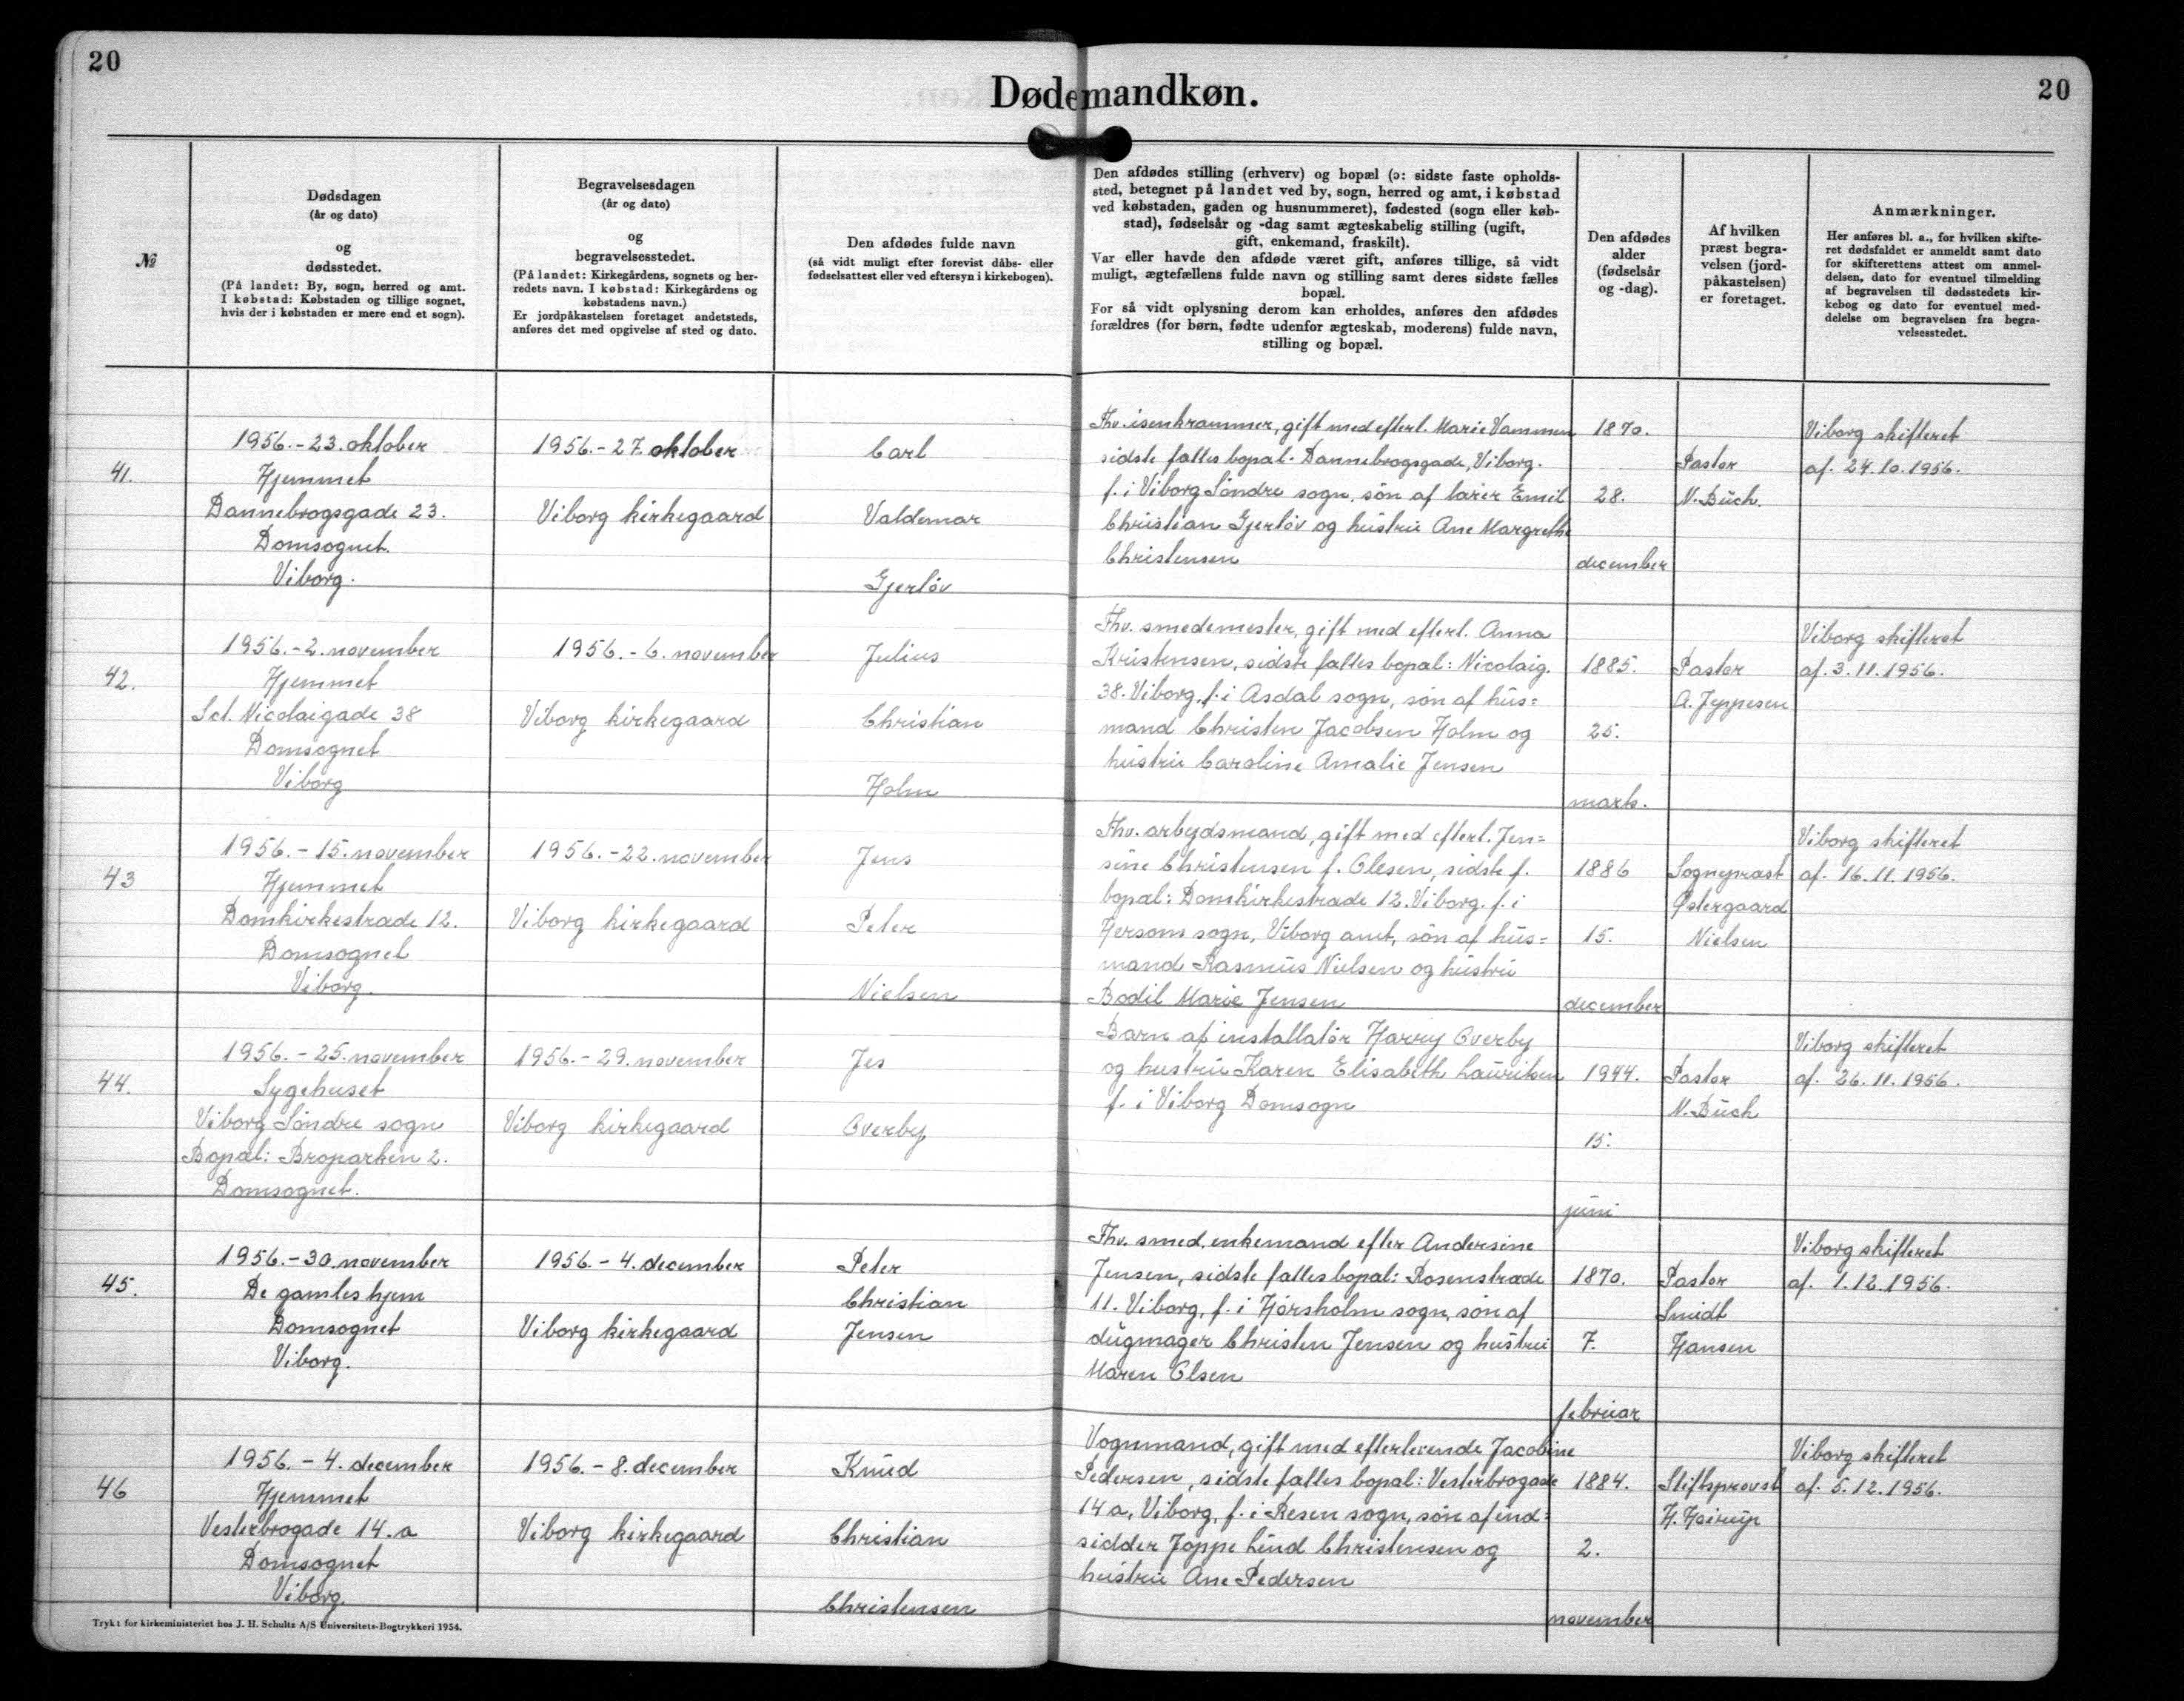 20
20
Døde mandkøn.
№
Dødsdagen
(år og dato)
og
dødsstedet.
(På landet: By, sogn, herred og amt.
I købstad: Købstaden og tillige sognet,
hvis der i købstaden er mere end et sogn).
Begravelsesdagen
(år og dato)
og
begravelsesstedet.
(På landet: Kirkegårdens, sognets og her-
redets navn. I købstad: Kirkegårdens og
købstadens navn.)
Er jordpåkastelsen foretaget andetsteds,
anføres det med opgivelse af sted og dato.
Den afdødes fulde navn
(så vidt muligt efter forevist dåbs- eller
fødselsattest eller ved eftersyn i kirkebogen).
Den afdødes stilling (erhverv) og bopæl (ɔ: sidste faste opholds-
sted, betegnet på landet ved by, sogn, herred og amt, i købstad
ved købstaden, gaden og husnummeret), fødested (sogn eller køb-
stad), fødselsår og -dag samt ægteskabelig stilling (ugift,
gift, enkemand, fraskilt).
Var eller havde den afdøde været gift, anføres tillige, så vidt
muligt, ægtefællens fulde navn og stilling samt deres sidste fælles
bopæl.
For så vidt oplysning derom kan erholdes, anføres den afdødes
forældres (for børn, fødte udenfor ægteskab, moderens) fulde navn,
stilling og bopæl.
Den afdødes
alder
(fødselsår
og -dag).
Af hvilken
præst begra-
velsen (jord-
påkastelsen)
er foretaget.
Anmærkninger.
Her anføres bl. a., for hvilken skifte-
ret dødsfaldet er anmeldt samt dato
for skifterettens attest om anmel-
delsen, dato for eventuel tilmelding
af begravelsen til dødsstedets kir-
kebog og dato for eventuel med-
delelse om begravelsen fra begra-
velsesstedet.
41.
1956.-23. oktober
Hjemmet
Dannebrogsgade 23.
Domsognet.
Viborg.
1956.-27. oktober
Viborg kirkegaard
Carl
Valdemar
Gjerløv
Fhv. isenkrammer, gift med efterl. Marie Vammen
sidste fælles bopæl. Dannebrogsgade, Viborg.
f. i Viborg Söndre sogn, sön af lærer Emil
Christian Gjerløv og hustru Ane Margrethe
Christensen
1870.
28.
december
Pastor
N. Buch.
Viborg skifteret
af. 24.10.1956.
42.
1956.-2. november
Hjemmet
Sct. Nicolaigade 38
Domsognet
Viborg
1956.-6. november
Viborg kirkegaard
Julius
Christian
Holm
Fhv. smedemester, gift med efterl. Anna
Kristensen, sidste fælles bopæl: Nicolaig.
38. Viborg, f. i Asdal sogn, sön af hus=
mand Christen Jacobsen Holm og
hustru Caroline Amalie Jensen
1885.
25.
marts.
Pastor
A. Jeppesen
Viborg skifteret
af. 3.11.1956.
43
1956.-15. november
Hjemmet
Domkirkestræde 12.
Domsognet
Viborg.
1956.-22. november
Viborg kirkegaard
Jens
Peter
Nielsen
Fhv. arbejdsmand, gift med efterl. Jen=
sine Christensen f. Olesen, sidste f.
bopæl: Domkirkestræde 12. Viborg. f. i
Hersom sogn, Viborg amt, sön af hus=
mand Rasmus Nielsen og hustru
Bodil Marie Jensen
1886
15.
december
Sognepræst
Østergaard
Nielsen
Viborg skifteret
af. 16.11.1956.
44.
1956.-25. november
Sygehuset
Viborg Söndre sogn
Bopæl: Broparken 2.
Domsognet.
1956.-29. november
Viborg kirkegaard
Jes
Overby
Barn af installatör Harry Overby
og hustru Karen Elisabeth Lauritsen
f. i Viborg Domsogn
1944.
15.
juni
Pastor
N. Buch
Viborg skifteret
af. 26.11.1956.
45.
1956.-30. november
De gamles hjem
Domsognet
Viborg.
1956.-4. december
Viborg kirkegaard
Peter
Christian
Jensen
Fhv. smed, enkemand efter Andersine
Jensen, sidste fælles bopæl: Rosenstræde
11. Viborg, f. i Hjörsholm sogn, sön af
dugmager Christen Jensen og hustru
Maren Olsen
1870.
7.
februar
Pastor
Smidt
Hansen
Viborg skifteret
af. 1.12.1956.
46
1956.-4. december
Hjemmet
Vesterbrogade 14.a
Domsognet
Viborg.
1956.-8. december
Viborg kirkegaard
Knud
Christian
Christensen
Vognmand, gift med efterlevende Jacobine
Pedersen, sidste fælles bopæl: Vesterbrogade
14a, Viborg, f. i Resen sogn, sön af ind=
sidder Joppe Lund Christensen og
hustru Ane Pedersen
1884.
2.
november
Stiftsprovst
H. Høirup
Viborg skifteret
af. 5.12.1956.
Trykt for kirkeministeriet hos J. H. Schultz A/S Universitets-Bogtrykkeri 1954.